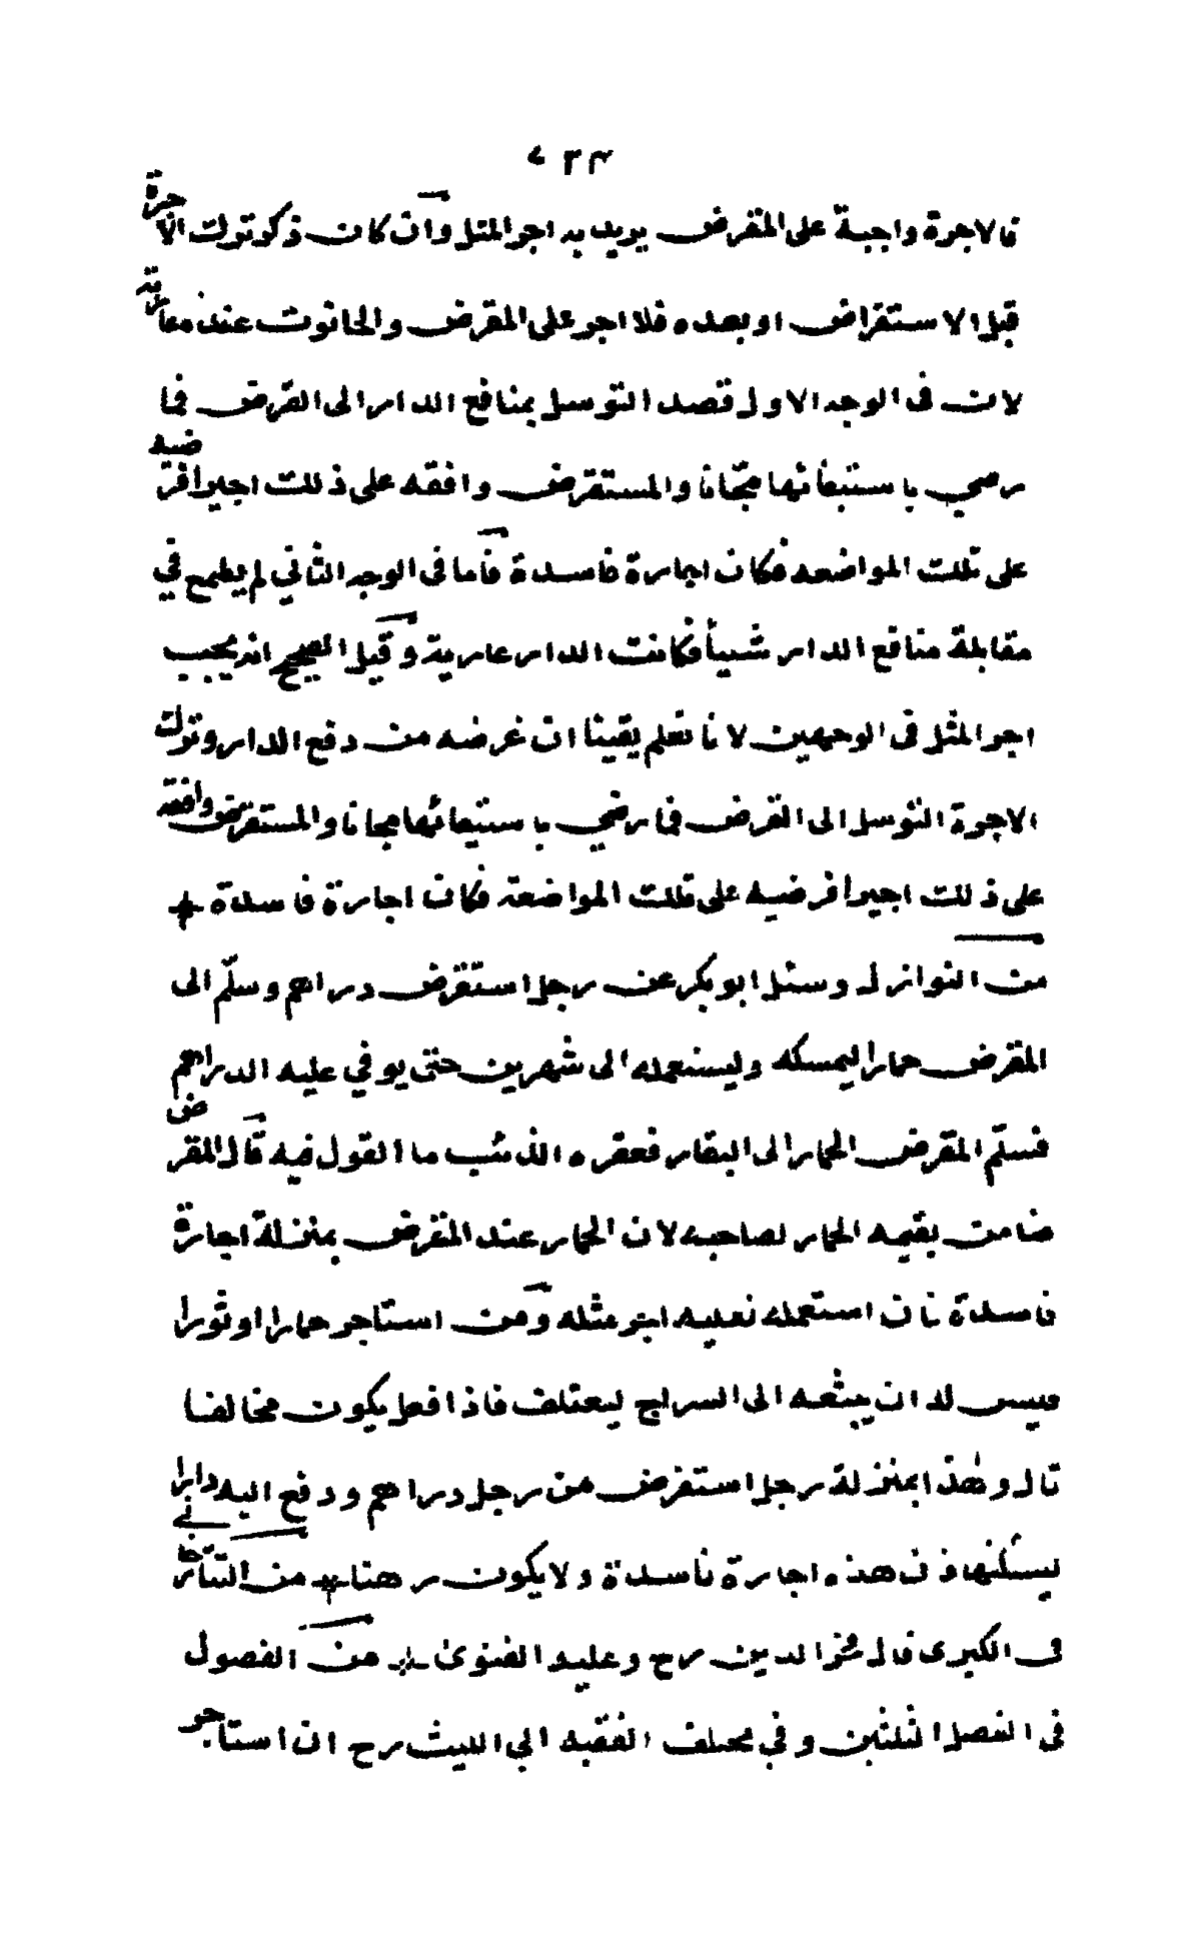 ٧٢٣
فالاجرة واجبة على المقرض يريد به اجر المثل وان كان ذكر ترك الاجرة
قبل الاستقراض او بعده فلا اجر على المقرض والحانوت عنده عارية
لان فى الوجه الاول قصد التوسل بمنافع الدار الى القرض فما
رضي باستيفائها مجّانا والمستقرض وافقه على ذلك اجيرا فرضيه
على تلك المواضعه فكان اجارة فاسدة فاما فى الوجه الثاني لم يطمع في
مقابلة منافع الدار شيأ فكانت الدار عارية وقيل الصحيح انه يجب
اجر المثل فى الوجهين لانا نعلم يقينا ان غرضه من دفع الدار وترك
الاجرة التوسل الى القرض فما رضي باستيفائها مجانا والمستقرض وافقه
على ذلك اجيرا فرضيه على تلك المواضعة فكان اجارة فاسدة
من النوازل وسئل ابو بكر عن رجل استقرض دراهم وسلّم الى
المقرض حمارا ليمسكه وليستعمله الى شهرين حتى يوفي عليه الدراهم
فسلّم المقرض الحمار الى البقار فعقره الذئب ما القول فيه قال المقرض
ضامن بقيمه الحمار لصاحبه لان الحمار عند المقرض بمنزلة اجارة
فاسدة فان استعمله فعليه اجر مثله ومن استاجر حمارا او ثورا
فليس له ان يبثعه الى السراج ليعتلف فاذا فعل يكون مخالفا
قال وهذا بمنزلة رجل استقرض من رجل دراهم ودفع اليه دارا
ليسكنها فان هذه اجارة فاسدة ولا يكون رهنا من التتارخاني
فى الكبرى قال فخر الدين رح وعليه الفتوى من الفصول
فى الفصل الثلثين وفي مختلف الفقيه ابي الليث رح ان استاجر